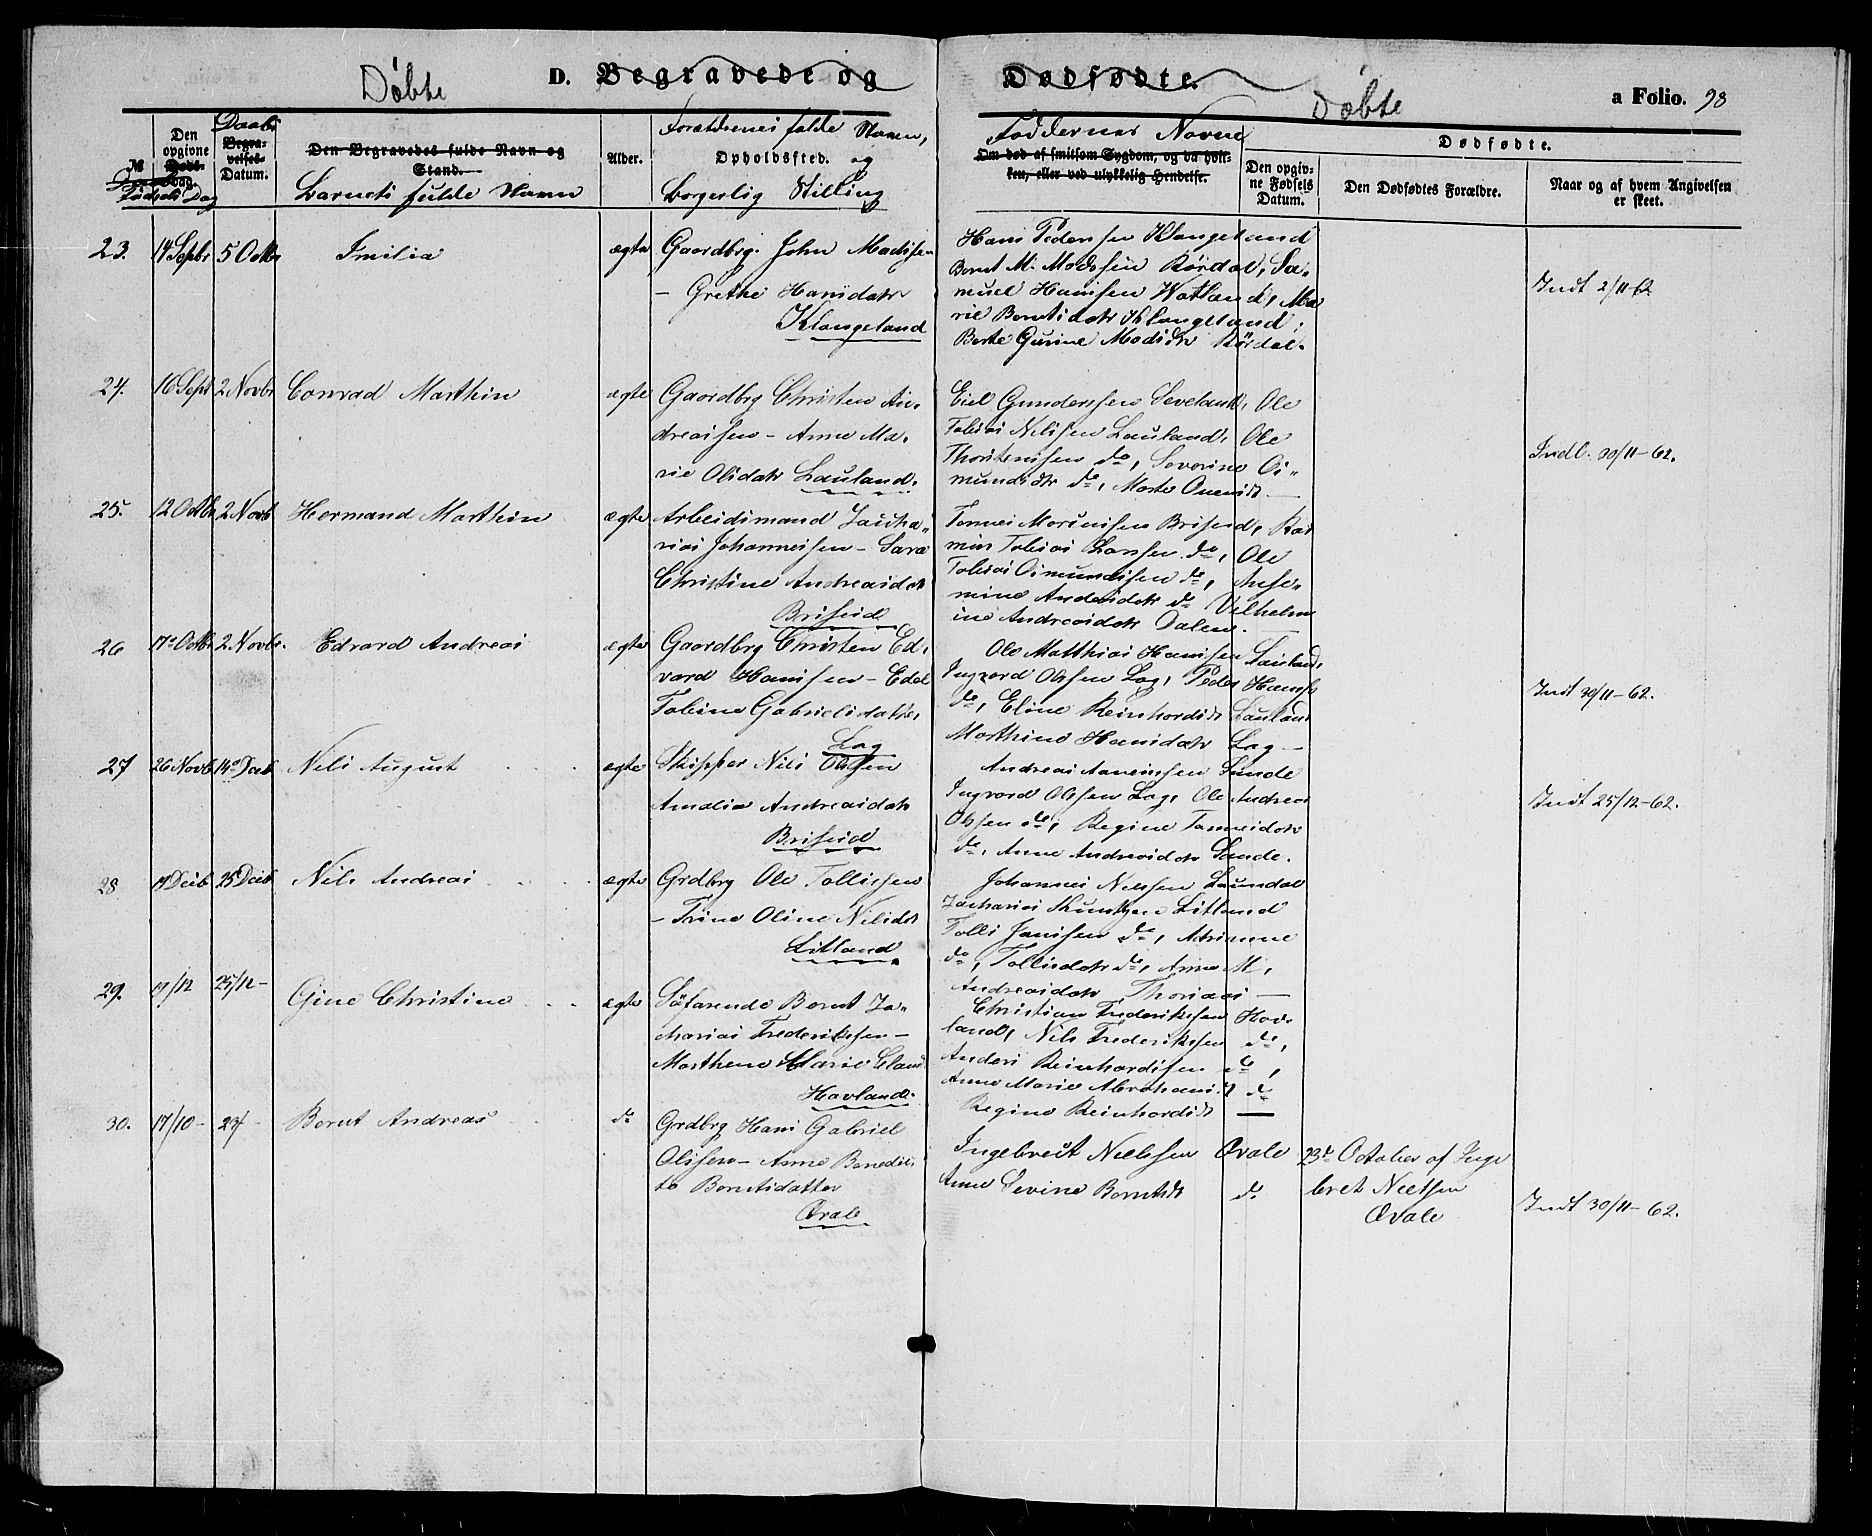 Döbte D. Begravede og Dødfødte. Döbte a Folio. 98
№ Födsels Dag
Den opgivne Døds-Dag.
Daabs
Begra-
velses-
Datum.
Den Begravedes fulde Navn og
Stand.
Barnets fulde Navn
Alder.
Forældrenes fulde Navn,
Opholdssted. og
borgerlig Stilling
Faddernes Navne
Om død af smitsom Sygdom, og da hvil-
ken, eller ved ulykkelig Hendelse.
Dødfødte.
Den opgiv-
ne Fødsels
Datum.
Den Dødfødtes Forældre.
Naar og af hvem Angivelsen
er skeet.
23. 14 Septbr 5 Octbr Emilia ægte Gaardbrg. John Madssen
- Grethe Hansdatr
Klangeland
Hans Pedersen Klangeland
Bernt M. Madssen Rördal, Sa-
muel Hanssen Watland, Ma
rie Berntsdatr Klangeland,
Berte Gurine Madsdtr Rördal.
Indt 2/11-62
24. 16 Sept 2 Novbr Conrad Marthin ægte Gaardbrg Christen An-
dreassen - Anne Ma-
rie Olsdatr Lauland.
Eiel Gunderssen Seveland, Ole
Tobias Nilssen Lauland, Ole
Thorstenssen do, Severine Os-
mundsdtr do, Marte Onensdt
Indb. 30/11-62.
25. 12 Octbr 2 Novb Hermand Marthin ægte Arbeidsmand Zacha-
rias Johannessen - Sara
Christine Andreasdatr
Briseid
Tønnes Mortenssen Briseid, Ras
mus Tobias Larssen do, Ole
Tobias Osmundssen do, Anse-
mine Andersdatr do Vilhelm
ine Andreasdatr Dalen.
26 17 Octbr 2 Novbr. Edvard Andreas ægte Gaardbrg Christen Ed-
vard Hanssen - Edel
Tobine Gabrielsdatter,
Lag
Ole Matthias Hanssen Lauland,
Ingvard Olssen Lag, Peder Hanss
do, Eline Reinhardsdt Lauland
Marthine Hansdatr Lag
Indt 30/11-62.
27 26 Novb 14 Decb Nils August ægte Skipper Nils Olssen
Amalia Andreasdatr
Briseid
Andreas Aanenssen Sande
Ingvard Olssen Lag, Ole Andreas
Olssen do, Regine Tønnesdatr
do, Anne Andreasdatr Sande.
Indt 25/12-62.
28 17 Decb 25 Decb Nils Andreas ægte Grdbrg Ole Tollissen
- Trine Oline Nilsdt
Litland
Johannes Nilssen Laundal
Zacharias Litland
Tollis Janssen do, Adrianne
do, Tollisdatr do, Anne M.
Andreasdatr
29. 17/12 25/12 - Gine Christine ægte Söfarende Bernt Za-
charias Frederikssen -
Marthine Marie Claus
Havland.
Christian Frederikssen Hav-
land, Nils Frederikssen do,
Anders Reinhardssen do,
Anne Marie Abrahamsdt do
Regine Reinhardsdt
30. 17/10 - 23/ - Bernt Andreas do Grdbrg Hans Gabriel
Olssen - Anne Benedic
te Berntsdatter
Qvale
Ingebreit Neelssen Qvale
Anne Sevine Berntsdt do
23d October af Inge
bret Neelsen
Qvale
Indt 30/11-62.